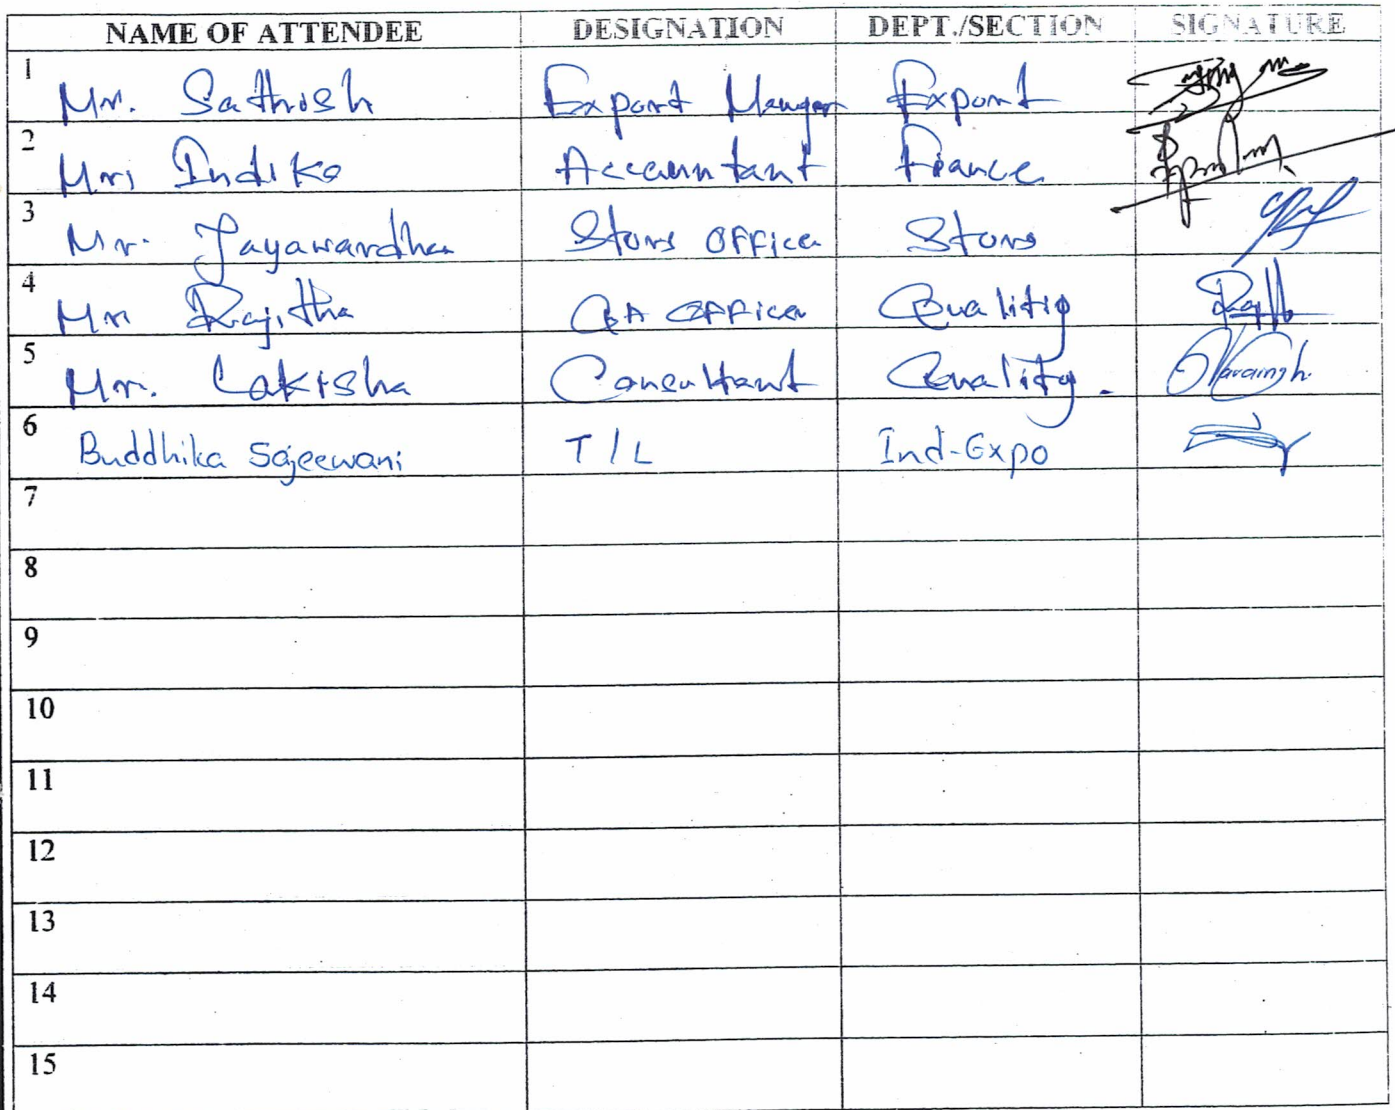 NAME OF ATTENDEE DESIGNATION DEPT./SECTION SIGNATURE
1 Mr. Sathish Export Manger Export
2 Mr. Indika Accountant Fiance
3 Mr. Jayawardha Stors Officer Stors
4 Mr Rajitha QA Officer Quality
5 Mr. Lakisha Consultant Quality.
6 Buddhika Sajeewani T/L Ind-Expo
7
8
9
10
11
12
13
14
15